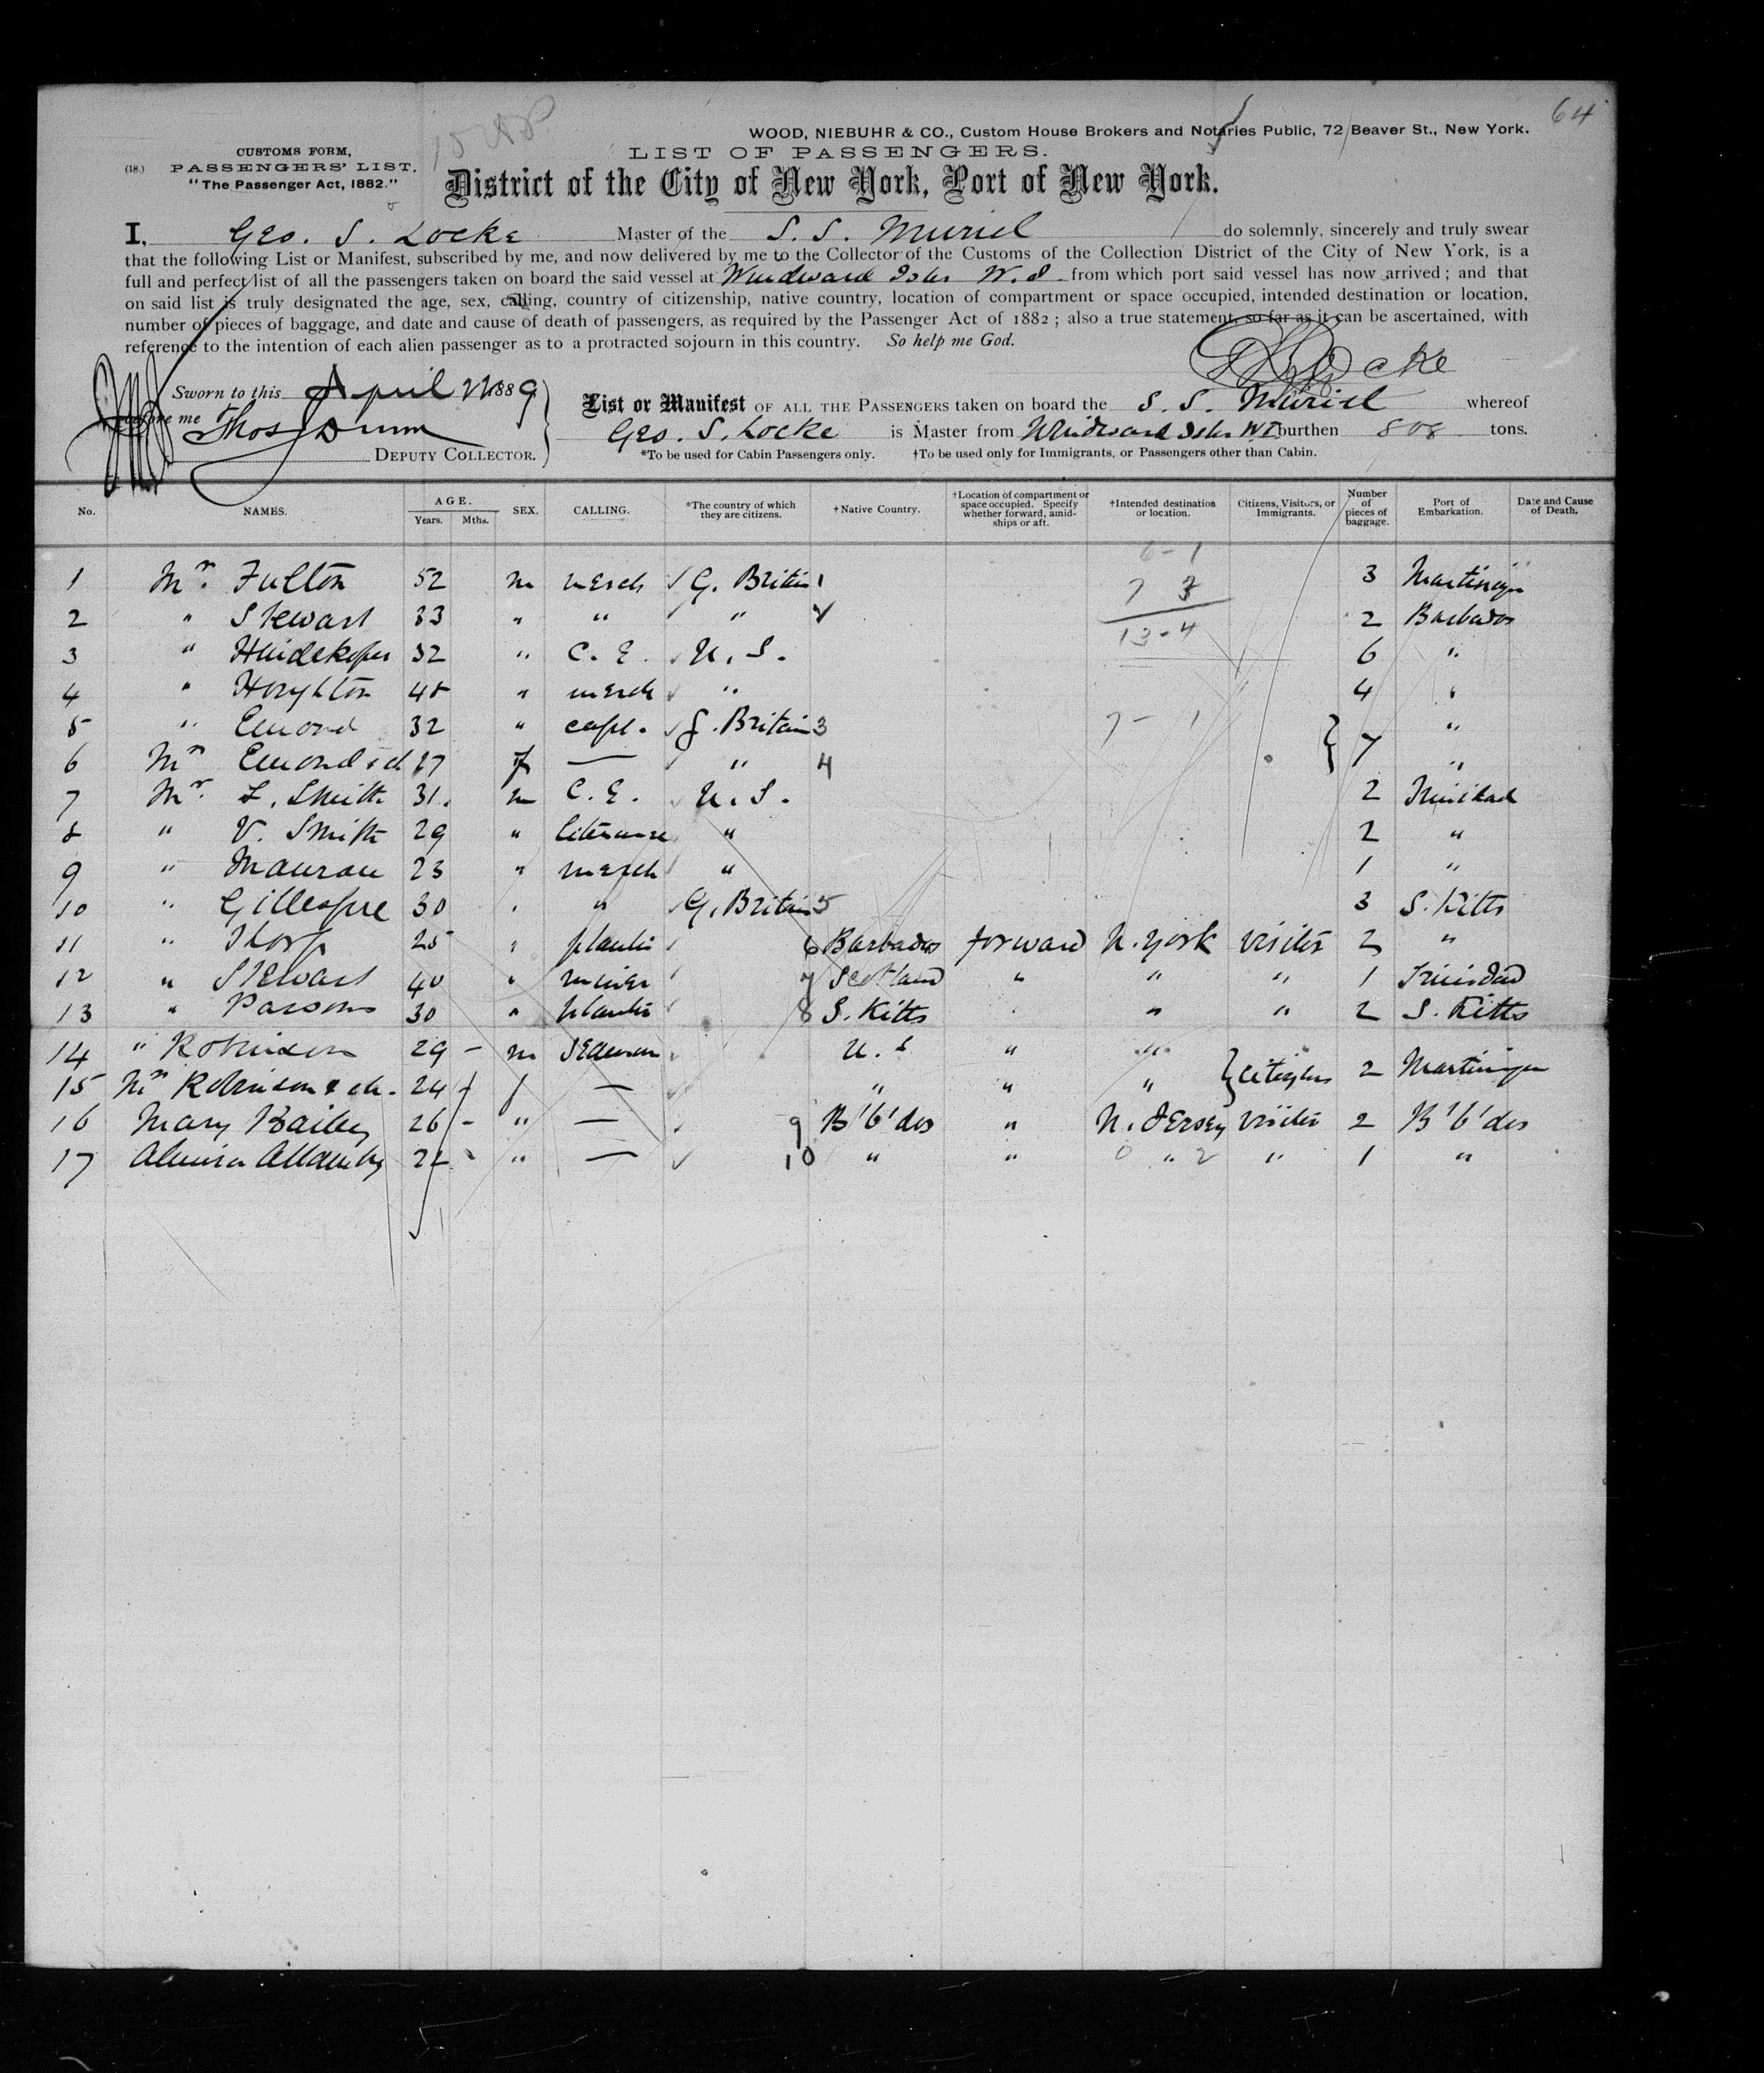 64
WOOD, NIEBUHR & CO., Custom House Brokers and Notaries Public, 72 Beaver St., New York.
CUSTOMS FORM,
LIST OF PASSENGERS.
(18.) PASSENGERS' LIST.
"The Passenger Act, 1882."
District of the City of New York, Port of New York.
I, Geo. S. Locke Master of the S. S. Muriel do solemnly, sincerely and truly swear
that the following List or Manifest, subscribed by me, and now delivered by me to the Collector of the Customs of the Collection District of the City of New York, is a
full and perfect list of all the passengers taken on board the said vessel at Windward Isles W. I from which port said vessel has now arrived; and that
on said list is truly designated the age, sex, calling, country of citizenship, native country, location of compartment or space occupied, intended destination or location,
number of pieces of baggage, and date and cause of death of passengers, as required by the Passenger Act of 1882; also a true statement, so far as it can be ascertained, with
reference to the intention of each alien passenger as to a protracted sojourn in this country. So help me God.
Locke
Sworn to this April 1889
before me Thos Dunn
DEPUTY COLLECTOR.
List or Manifest OF ALL THE PASSENGERS taken on board the S. S. Muriel whereof
Geo. S. Locke is Master from Windward Isles W I burthen 808 tons.
*To be used for Cabin Passengers only. †To be used only for Immigrants, or Passengers other than Cabin.
No. NAMES. AGE. Years. Mths. SEX. CALLING. *The country of which they are citizens. †Native Country. †Location of compartment or space occupied. Specify whether forward, amidships or aft. †Intended destination or location. Citizens, Visitors, or Immigrants. Number of pieces of baggage. Port of Embarkation. Date and Cause of Death.
6 - 1
7 3
13 - 4
1 Mr. Fulton 52 m merch G. Britain 1 3 Martinique
2 " Stewart 33 " " " 2 Barbados
3 " 32 " C. E. U. S. 6 "
4 " Houghton 45 " merch " 4 "
5 " Emond 32 " capt. G. Britain 3 7 - 1 "
6 Mrs Emond & ch 27 f — " 4 7 "
7 Mr. L. Smith 31 m C. E. U. S. 2 Trinidad
8 " V. Smith 29 " literature " 2 "
9 " Mauran 23 " merch " 1 "
10 " Gillespie 30 " " G. Britain 5 3 S. Kitts
11 " Thorp 25 " planter 6 Barbados forward N. York visitor 2 "
12 " Stewart 40 " miner 7 Scotland " " " 1 Trinidad
13 " Parsons 30 " planter 8 S. Kitts " " " 2 S. Kitts
14 " Robinson 29 - m seaman U. S " "
15 Mrs Robinson & ch. 24 f — " " " citizens 2 Martinique
16 Mary Bailey 26 - " — 9 B'b'dos " N. Jersey visitor 2 B'b'dos
17 22 " — 10 " " 0 " 2 " 1 "